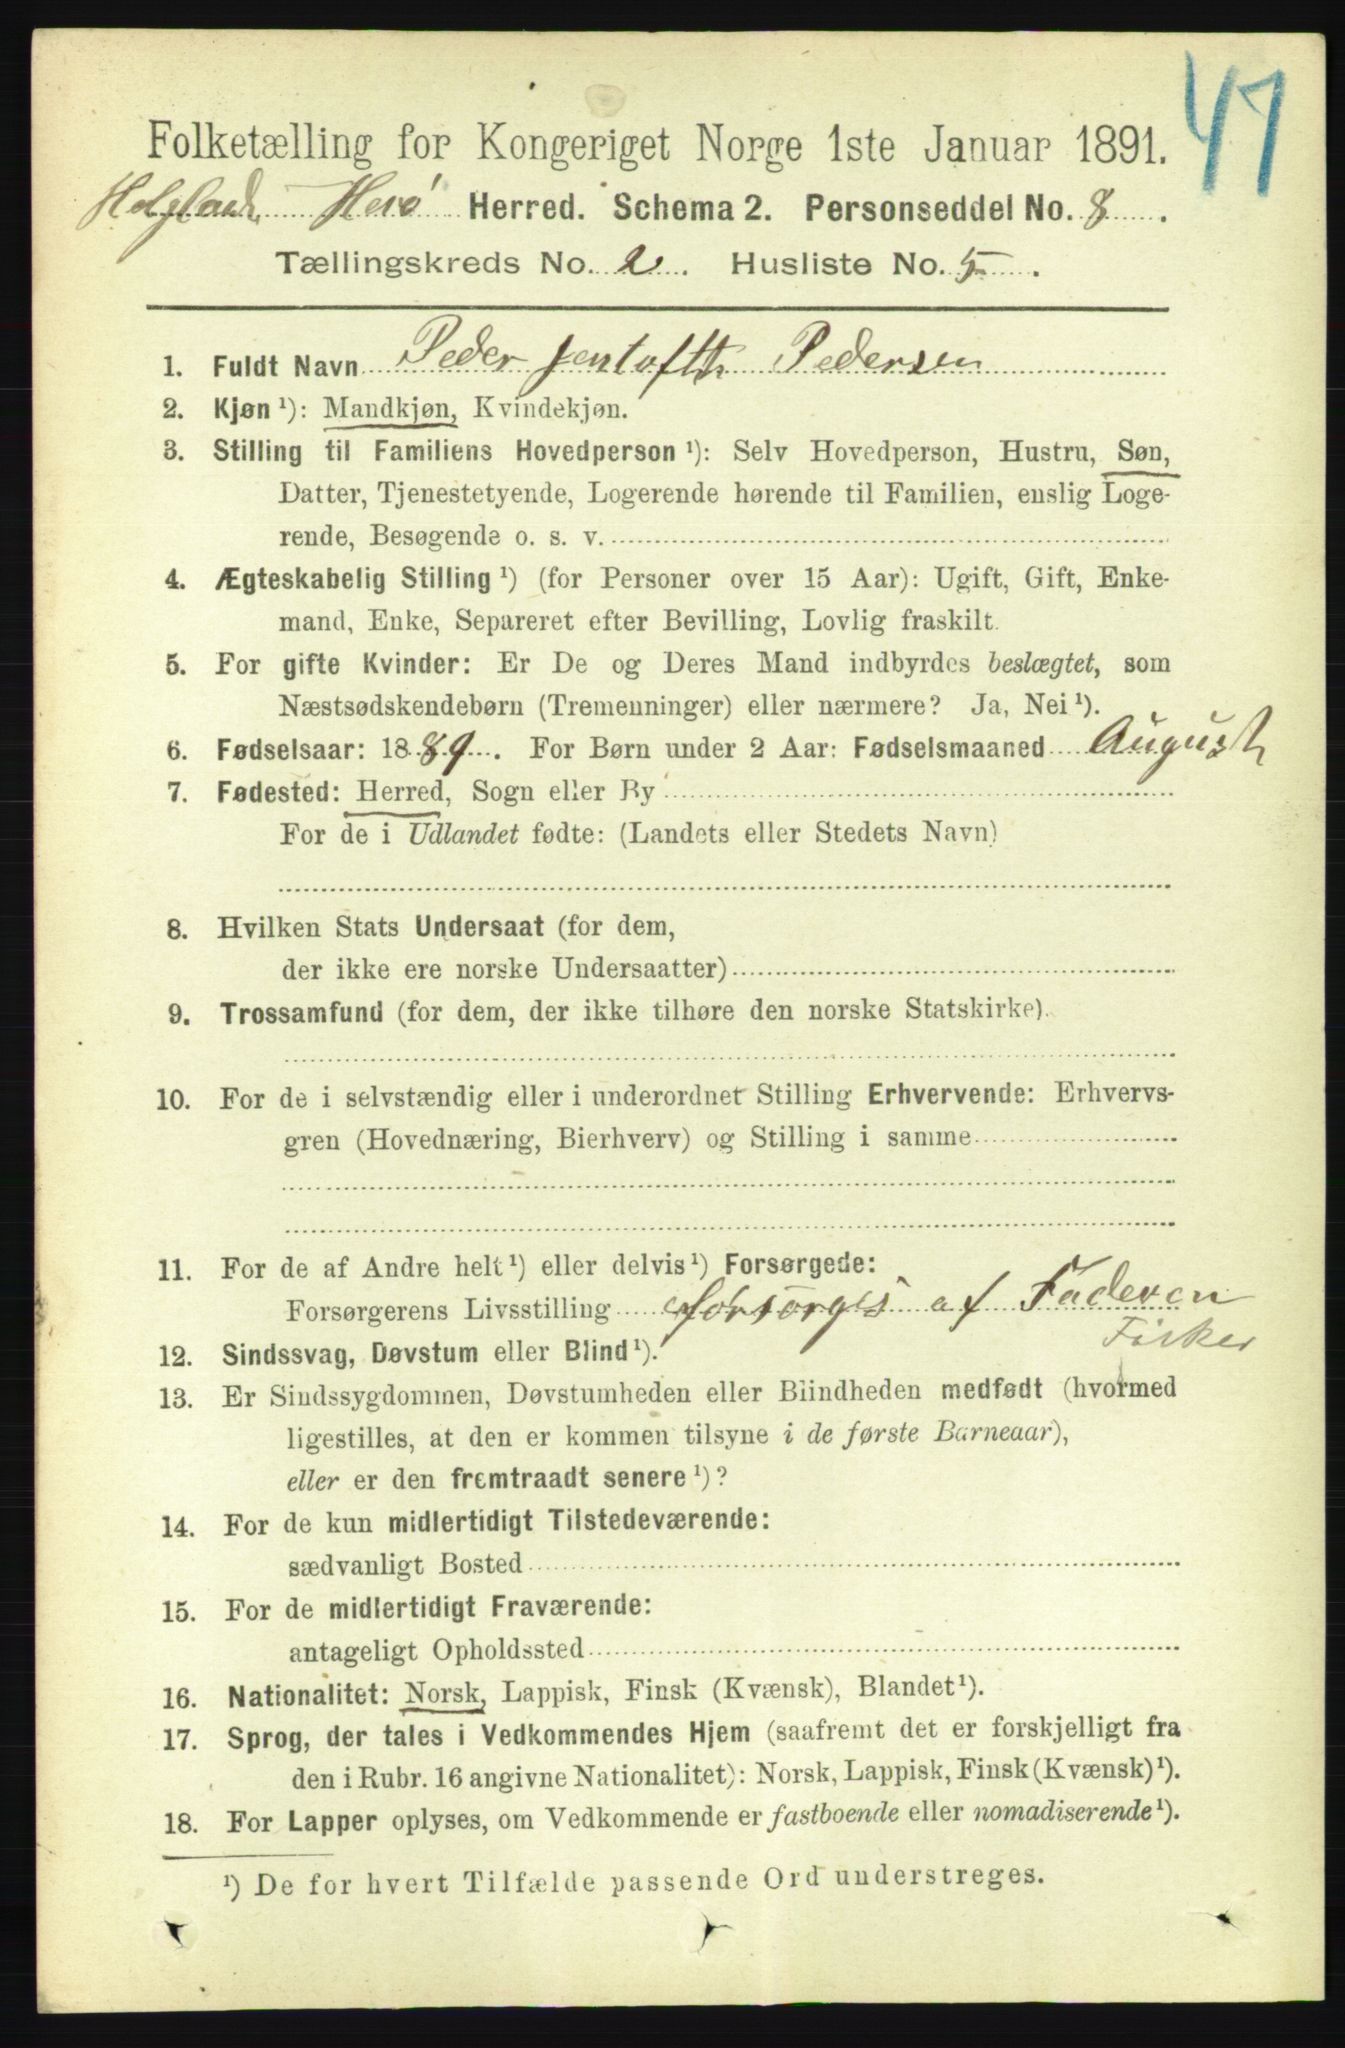 47
Folketælling for Kongeriget Norge 1ste Januar 1891.
Helgeland Herø Herred. Schema 2. Personseddel No. 8.
Tællingskreds No. 2. Husliste No. 5.
1. Fuldt Navn Peder Jentofth Pedersen
2. Kjøn ¹): Mandkjøn, Kvindekjøn.
3. Stilling til Familiens Hovedperson ¹): Selv Hovedperson, Hustru, Søn,
Datter, Tjenestetyende, Logerende hørende til Familien, enslig Loge-
rende, Besøgende o. s. v.
4. Ægteskabelig Stilling ¹) (for Personer over 15 Aar): Ugift, Gift, Enke-
mand, Enke, Separeret efter Bevilling, Lovlig fraskilt.
5. For gifte Kvinder: Er De og Deres Mand indbyrdes beslægtet, som
Næstsødskendebørn (Tremenninger) eller nærmere? Ja, Nei ¹).
6. Fødselsaar: 1889. For Børn under 2 Aar: Fødselsmaaned August
7. Fødested: Herred, Sogn eller By
For de i Udlandet fødte: (Landets eller Stedets Navn)
8. Hvilken Stats Undersaat (for dem,
der ikke ere norske Undersaatter)
9. Trossamfund (for dem, der ikke tilhøre den norske Statskirke).
10. For de i selvstændig eller i underordnet Stilling Erhvervende: Erhvervs-
gren (Hovednæring, Bierhverv) og Stilling i samme
11. For de af Andre helt ¹) eller delvis ¹) Forsørgede:
Forsørgerens Livsstilling forsørges af Faderen
Fisker
12. Sindssvag, Døvstum eller Blind ¹).
13. Er Sindssygdommen, Døvstumheden eller Blindheden medfødt (hvormed
ligestilles, at den er kommen tilsyne i de første Barneaar),
eller er den fremtraadt senere ¹)?
14. For de kun midlertidigt Tilstedeværende:
sædvanligt Bosted
15. For de midlertidigt Fraværende:
antageligt Opholdssted
16. Nationalitet: Norsk, Lappisk, Finsk (Kvænsk), Blandet ¹).
17. Sprog, der tales i Vedkommendes Hjem (saafremt det er forskjelligt fra
den i Rubr. 16 angivne Nationalitet): Norsk, Lappisk, Finsk (Kvænsk) ¹).
18. For Lapper oplyses, om Vedkommende er fastboende eller nomadiserende ¹).
¹) De for hvert Tilfælde passende Ord understreges.